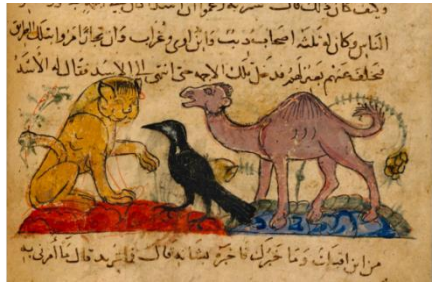 وكيف كان ذلك قال
الناس وكان له ثلثة اصحاب ذيب وابن اوى وغراب وان تجارا مروا بتلك الطريق
فتخلف عنهم بعير لهم فدخل تلك الاجمه حتى انتهى الى الاسد فقال له الاسد
من اين اقبلت وما خبرك فاخبره بشانه قال فما تريد قال ما امرنى به